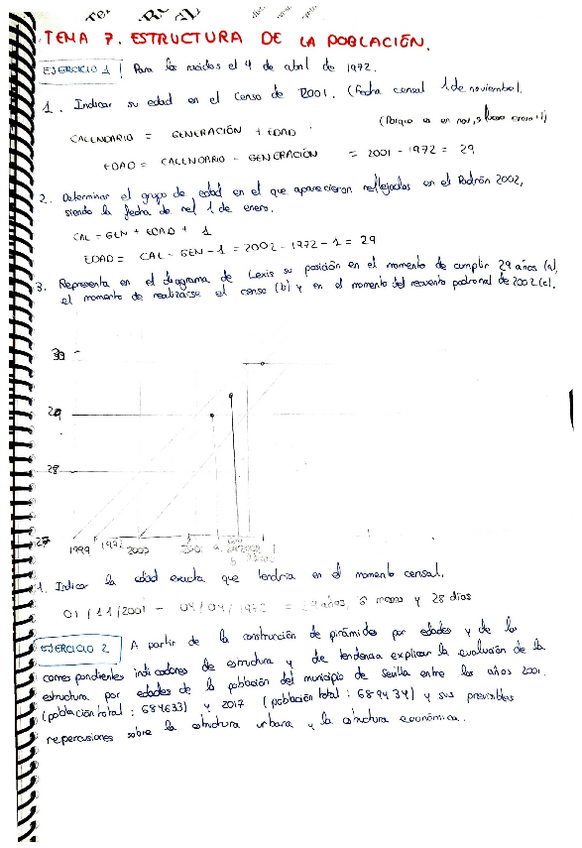 TEMA 7. ESTRUCTURA DE LA POBLACIÓN.
EJERCICIO 1 Para los nacidos el 4 de abril de 1972.
1. Indicar su edad en el Censo de 2001. (Fecha censal 1 de noviembre).
CALENDARIO = GENERACIÓN + EDAD (Porque es en nov,
EDAD = CALENDARIO - GENERACIÓN = 2001 - 1972 = 29
2. Determinar el grupo de edad en el que aparecieron reflejados en el Padrón 2002,
siendo la fecha de ref 1 de enero.
CAL = GEN + EDAD + 1
EDAD = CAL - GEN - 1 = 2002 - 1972 - 1 = 29
3. Representa en el diagrama de Lexis su posición en el momento de cumplir 29 años (a),
el momento de realizarse el censo (b) y en el momento del recuento padronal de 2002 (c).
30
29
28
27
1999 1972 2000 2001 a.
b
4. Indicar la edad exacta que tendría en el momento censal.
01/11/2001 - 04/04/1972 = 29 años, 6 meses y 28 días
EJERCICIO 2 A partir de la construcción de pirámides por edades y de los
correspondientes indicadores de estructura y de tendencia explicar la evolución de la
estructura por edades de la población del municipio de Sevilla entre los años 2001.
(población total: 684633) y 2017 (población total: 689434) y sus previsibles
repercusiones sobre la estructura urbana y la estructura económica.